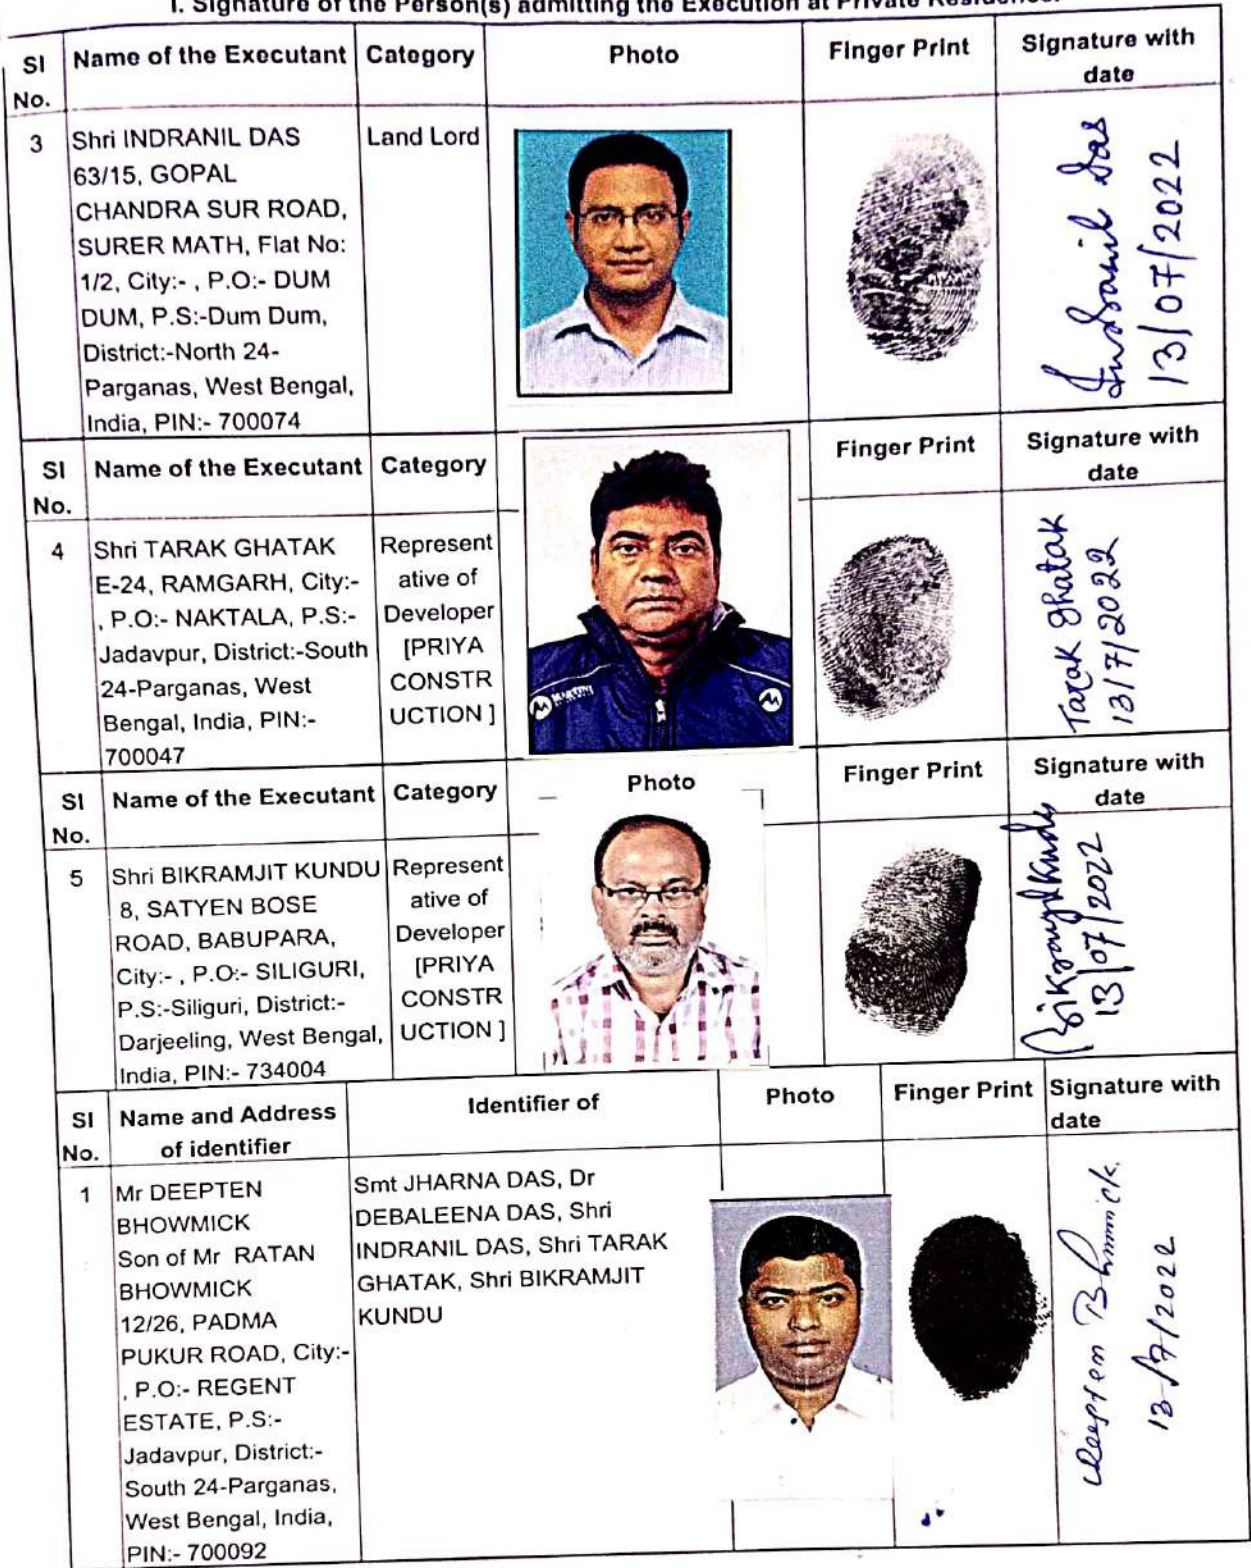 I. Signature of the Person(s) admitting the Execution at Private Residence.
Sl No.
Name of the Executant
Category
Photo
Finger Print
Signature with date
3
Shri INDRANIL DAS
63/15, GOPAL
CHANDRA SUR ROAD,
SURER MATH, Flat No:
1/2, City:- , P.O:- DUM
DUM, P.S:-Dum Dum,
District:-North 24-
Parganas, West Bengal,
India, PIN:- 700074
Land Lord
Indranil Das
13/07/2022
Sl No.
Name of the Executant
Category
Finger Print
Signature with date
4
Shri TARAK GHATAK
E-24, RAMGARH, City:-
, P.O:- NAKTALA, P.S:-
Jadavpur, District:-South
24-Parganas, West
Bengal, India, PIN:-
700047
Represent
ative of
Developer
[PRIYA
CONSTR
UCTION ]
Tarak Ghatak
13/7/2022
Sl No.
Name of the Executant
Category
Photo
Finger Print
Signature with date
5
Shri BIKRAMJIT KUNDU
8, SATYEN BOSE
ROAD, BABUPARA,
City:- , P.O:- SILIGURI,
P.S:-Siliguri, District:-
Darjeeling, West Bengal,
India, PIN:- 734004
Represent
ative of
Developer
[PRIYA
CONSTR
UCTION ]
Bikramjit Kundu
13/07/2022
Sl No.
Name and Address
of identifier
Identifier of
Photo
Finger Print
Signature with
date
1
Mr DEEPTEN
BHOWMICK
Son of Mr RATAN
BHOWMICK
12/26, PADMA
PUKUR ROAD, City:-
, P.O:- REGENT
ESTATE, P.S:-
Jadavpur, District:-
South 24-Parganas,
West Bengal, India,
PIN:- 700092
Smt JHARNA DAS, Dr
DEBALEENA DAS, Shri
INDRANIL DAS, Shri TARAK
GHATAK, Shri BIKRAMJIT
KUNDU
Deepten Bhowmick.
13/7/2022